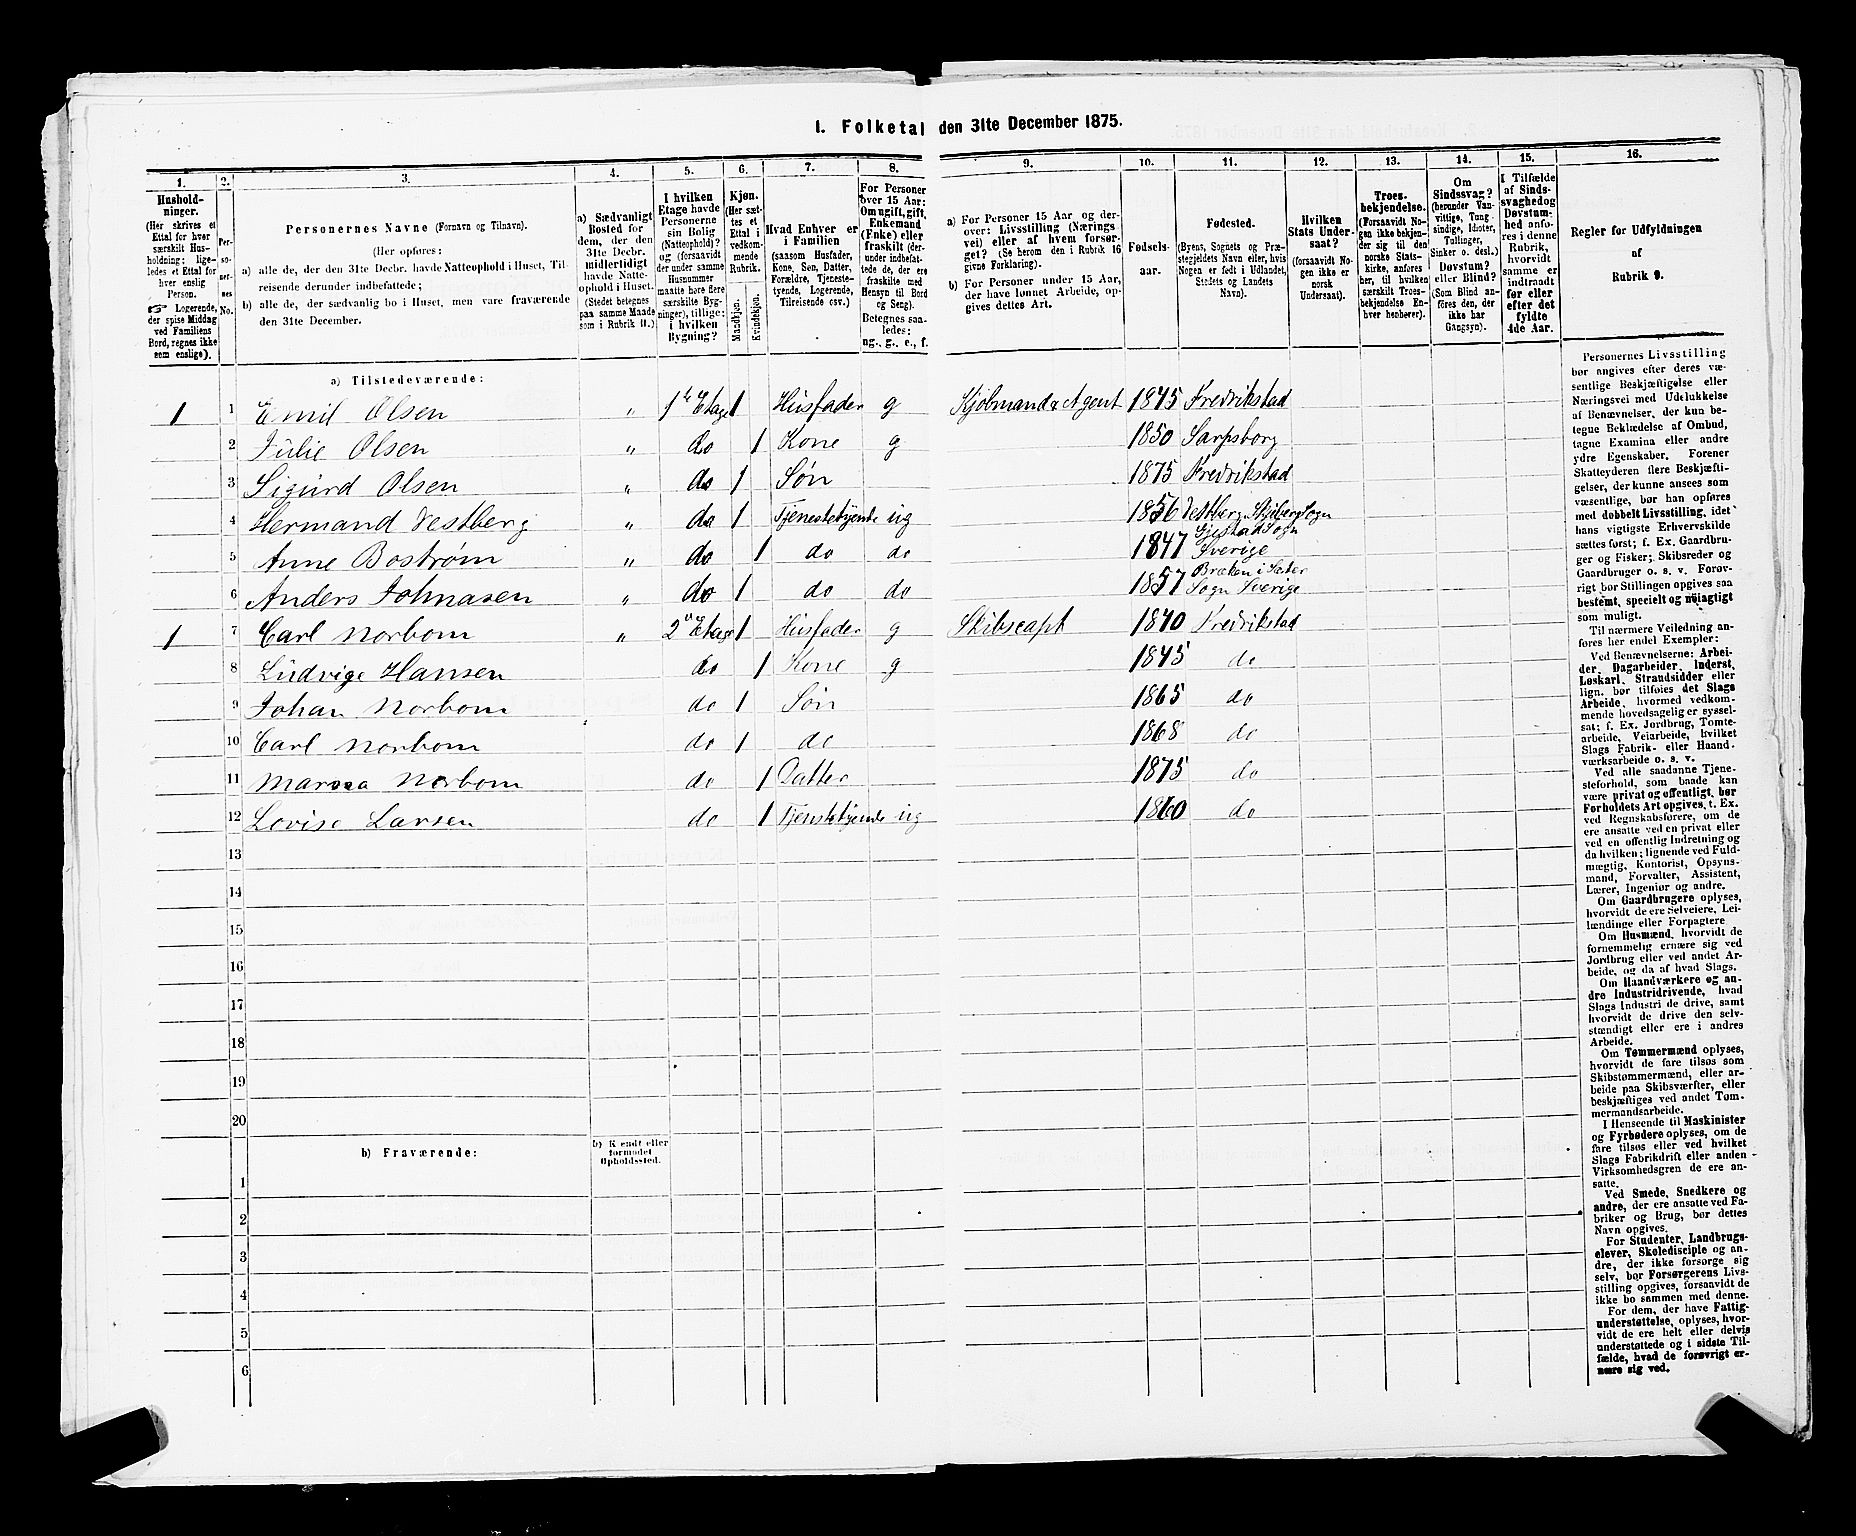 1. Folketal den 31te December 1875.
1. 2. 3. 4. 5. 6. 7. 8. 9. 10. 11. 12. 13. 14. 15. 16.
Hushold-
ninger.
(Her skrives et
Ettal for hver
særskilt Hus-
holdning; lige-
ledes et Ettal for
hver enslig
Person.
☞ Logerende,
der spise Middag
ved Familiens
Bord, regnes ikke
som enslige).
Per-
so-
ner-
nes
No.
Personernes Navne (Fornavn og Tilnavn).
(Her opføres:
a) alle de, der den 31te Decbr. havde Natteophold i Huset, Til-
reisende derunder indbefattede;
b) alle de, der sædvanlig bo i Huset, men vare fraværende
den 31te December.
a) Sædvanligt
Bosted for
dem, der den
31te Decbr.
midlertidigt
havde Natte-
ophold i Huset.
(Stedet betegnes
paa samme Maade
som i Rubrik 11.)
I hvilken
Etage havde
Personerne
sin Bolig
(Natteophold)?
og (forsaavidt
der under samme
Husnummer
maatte høre flere
særskilte Byg-
ninger), tillige:
i hvilken
Bygning?
Kjøn.
(Her sæt-
tes et
Ettal i
vedkom-
mende
Rubrik.
Mandkjøn.
Kvindekjøn.
Hvad Enhver er
i Familien
(saasom Husfader,
Kone, Søn, Datter,
Forældre, Tjeneste-
tyende, Logerende,
Tilreisende osv.)
For Personer
over 15 Aar:
Om ugift, gift,
Enkemand
(Enke) eller
fraskilt (der-
under indbefat-
tede de, der ere
fraskilte med
Hensyn til Bord
og Seng).
Betegnes saa-
ledes:
ug., g., e., f.
a) For Personer 15 Aar og der-
over: Livsstilling (Nærings-
vei) eller af hvem forsør-
get? (Se herom den i Rubrik 16
givne Forklaring).
b) For Personer under 15 Aar,
der have lønnet Arbeide, op-
gives dettes Art.
Fødsels-
aar.
Fødested.
(Byens, Sognets og Præ-
stegjeldets Navn eller, hvis
Nogen er født i Udlandet,
Stedets og Landets
Navn).
Hvilken
Stats Under-
saat?
(forsaavidt No-
gen ikke er
norsk
Undersaat).
Troes-
bekjendelse.
(Forsaavidt No-
gen ikke bekjen-
der sig til den
norske Stats-
kirke, anføres
her, til hvilken
særskilt Troes-
bekjendelse En-
hver henhører).
Om
Sindssvag?
eller Blind?
(herunder Van-
vittige, Tung-
sindige, Idioter,
Tullinger,
Sinker o. desl.)
Døvstum?
eller Blind?
(Som Blind an-
føres den, der
ikke har
Gangsyn).
I Tilfælde
af Sinds-
svaghed og
Døvstum-
hed anfø-
res i denne
Rubrik,
hvorvidt
samme er
indtraadt
før eller
efter det
fyldte
4de Aar.
Regler for Udfyldningen
af
Rubrik 9.
a) Tilstedeværende:
1 1 Emil Olsen " 1te Etage 1 Husfader g Kjøbmand & Agent 1845 Fredrikstad
2 Julie Olsen " do 1 Kone g 1850 Sarpsborg
3 Sigurd Olsen " do 1 Søn 1875 Fredrikstad
4 Hermand Vestberg " do 1 Tjenestetyende ug 1856 Vestberg Skjiberg Sogn
5 Anne Bostrøm " do 1 do do 1847 Sogn Sverige
6 Anders Johnasen " do 1 do do 1857 Bräken i Sæter Sogn Sverige
1 7 Carl Norbom " 2 Etage 1 Husfader g Skibscapt 1840 Fredrikstad
8 Ludvige Hansen do 1 Kone g 1845 do
9 Johan Norbom do 1 Søn 1865 do
10 Carl Norbom do 1 do 1868 do
11 Norbom do 1 Datter 1875 do
12 Lovise Larsen do 1 Tjenstetyende ug 1860 do
13
14
15
16
17
18
19
20
b) Fraværende:
b) Kjendt eller
formodet
Opholdssted.
1
2
3
4
5
6
Personernes Livsstilling
bør angives efter deres væ-
sentlige Beskjæftigelse eller
Næringsvei med Udelukkelse
af Benævnelser, der kun be-
tegne Beklædelse af Ombud,
tagne Examina eller andre
ydre Egenskaber. Forener
Skatteyderen flere Beskjæfti-
gelser, der kunne ansees som
væsentlige, bør han opføres
med dobbelt Livsstilling, idet
hans vigtigste Erhvervskilde
sættes først; f. Ex. Gaardbru-
ger og Fisker; Skibsreder og
Gaardbruger o. s. v. Forøv-
rigt bør Stillingen opgives saa
bestemt, specielt og nøiagtigt
som muligt.
Til nærmere Veiledning an-
føres her endel Exempler:
Ved Benævnelserne: Arbei-
der, Dagarbeider, Inderst,
Løskarl, Strandsidder eller
lign. bør tilføies det Slags
Arbeide, hvormed vedkom-
mende hovedsagelig er syssel-
sat; f. Ex. Jordbrug, Tomte-
arbeide, Veiarbeide, hvilket
Slags Fabrik- eller Haand-
værksarbeide o. s. v.
Ved alle saadanne Tjene-
steforhold, som baade kan
være privat og offentligt, bør
Forholdets Art opgives, t. Ex.
ved Regnskabsførere, om de
ere ansatte ved en privat eller
ved en offentlig Indretning og
da hvilken; lignende ved Fuld-
mægtig, Kontorist, Opsyns-
mand, Forvalter, Assistent,
Lærer, Ingeniør og andre.
Om Gaardbrugere oplyses,
hvorvidt de ere Selveiere, Lei-
lændinge eller Forpagtere
Om Husmænd, hvorvidt de
fornemmelig ernære sig ved
Jordbrug eller ved andet Ar-
beide, og da af hvad Slags.
Om Haandværkere og an-
dre Industridrivende, hvad
Slags Industri de drive, samt
hvorvidt de drive den selv-
stændigt eller ere i andres
Arbeide.
Om Tømmermænd oplyses,
hvorvidt de fare tilsøs som
Skibstømmermænd, eller ar-
beide paa Skibsværfter, eller
beskjæftiges ved andet Tøm-
mermandsarbeide.
I Henseende til Maskinister
og Fyrbødere oplyses, om de
fare tilsøs eller ved hvilket
Slags Fabrikdrift eller anden
Virksomhedsgren de ere an-
satte.
Ved Smede, Snedkere og
andre, der ere ansatte ved Fa-
briker og Brug, bør dettes
Navn opgives.
For Studenter, Landbrugs-
elever, Skoledisciple og an-
dre, der ikke forsørge sig
selv, bør Forsørgerens Livs-
stilling opgives, forsaavidt de
ikke bo sammen med denne.
For dem, der have Fattig-
understøttelse, oplyses, hvor-
vidt de ere helt eller delvis
understøttede og i sidste Til-
fælde, hvad de forøvrigt er-
nære sig ved.